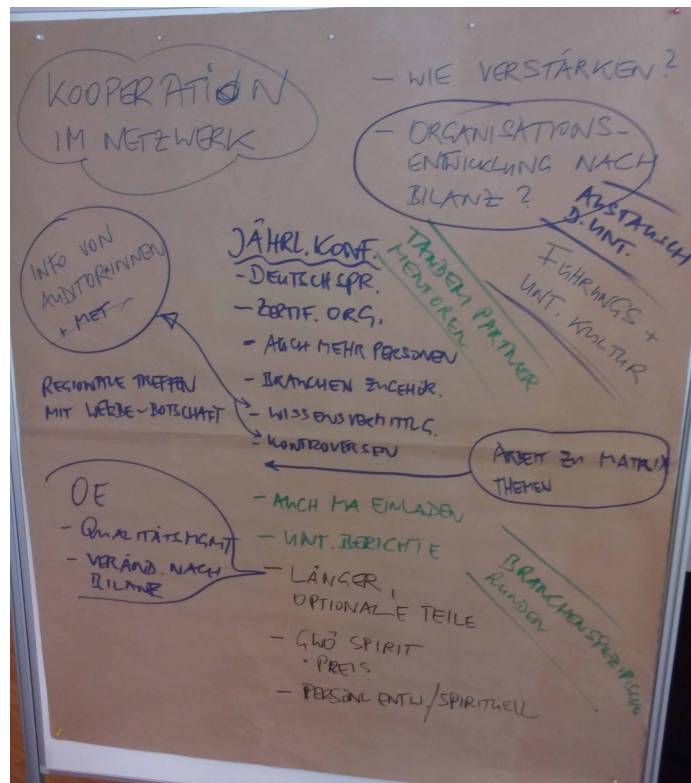 KOOPERATION
IM NETZWERK
- WIE VERSTÄRKEN?
- ORGANISATIONS-
ENTWICKLUNG NACH
BILANZ?
AUSTAUSCH
D. UNT.
FÜHRUNGS +
UNT. KULTUR
TANDEM PARTNER
MENTOREN
INFO VON
AUDITOR*INNEN
+ MET
JÄHRL. KONF.
- DEUTSCHSPR.
- ZERTIF. ORG.
- AUCH MEHR PERSONEN
- BRANCHEN ZUGEHÖR.
- WISSENSVERMITTLG.
- KONTROVERSEN
REGIONALE TREFFEN
MIT WERBE-BOTSCHAFT
ARBEIT ZU MATRIX
THEMEN
OE
- QUALITÄTSMGMT
- VERÄND. NACH
BILANZ
- AUCH MA EINLADEN
- UNT. BERICHTE
- LÄNGER,
OPTIONALE TEILE
- GWÖ SPIRIT
• PREIS
- PERSÖNL ENTW./SPIRITUELL
BRANCHENSPEZIFISCHE
RUNDEN